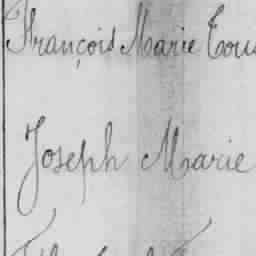 François Marie Tous
Joseph Marie